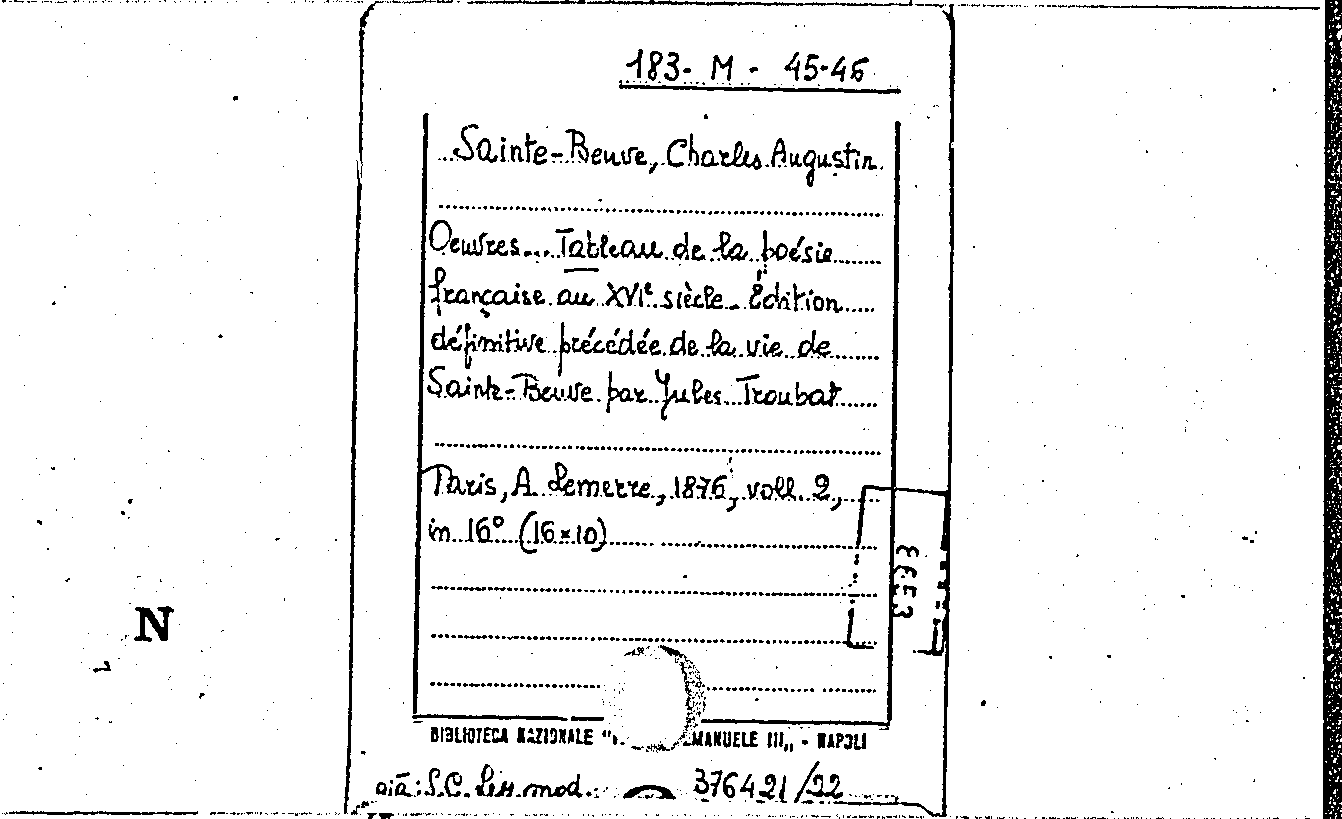 183- M - 45-46
Sainte-Beuve, Charles Augustin
Oeuvres... Tableau de la poésie
française au XVIe siècle - Édition
définitive précédée de la vie de
Sainte-Beuve par Jules Troubat
Paris, A. Lemerre, 1876, voll. 2,
in 16° (16×10)
N
BIBLIOTECA NAZIONALE "MANUELE III„ - NAPOLI
già: S.C. Lett mod. 376421/22